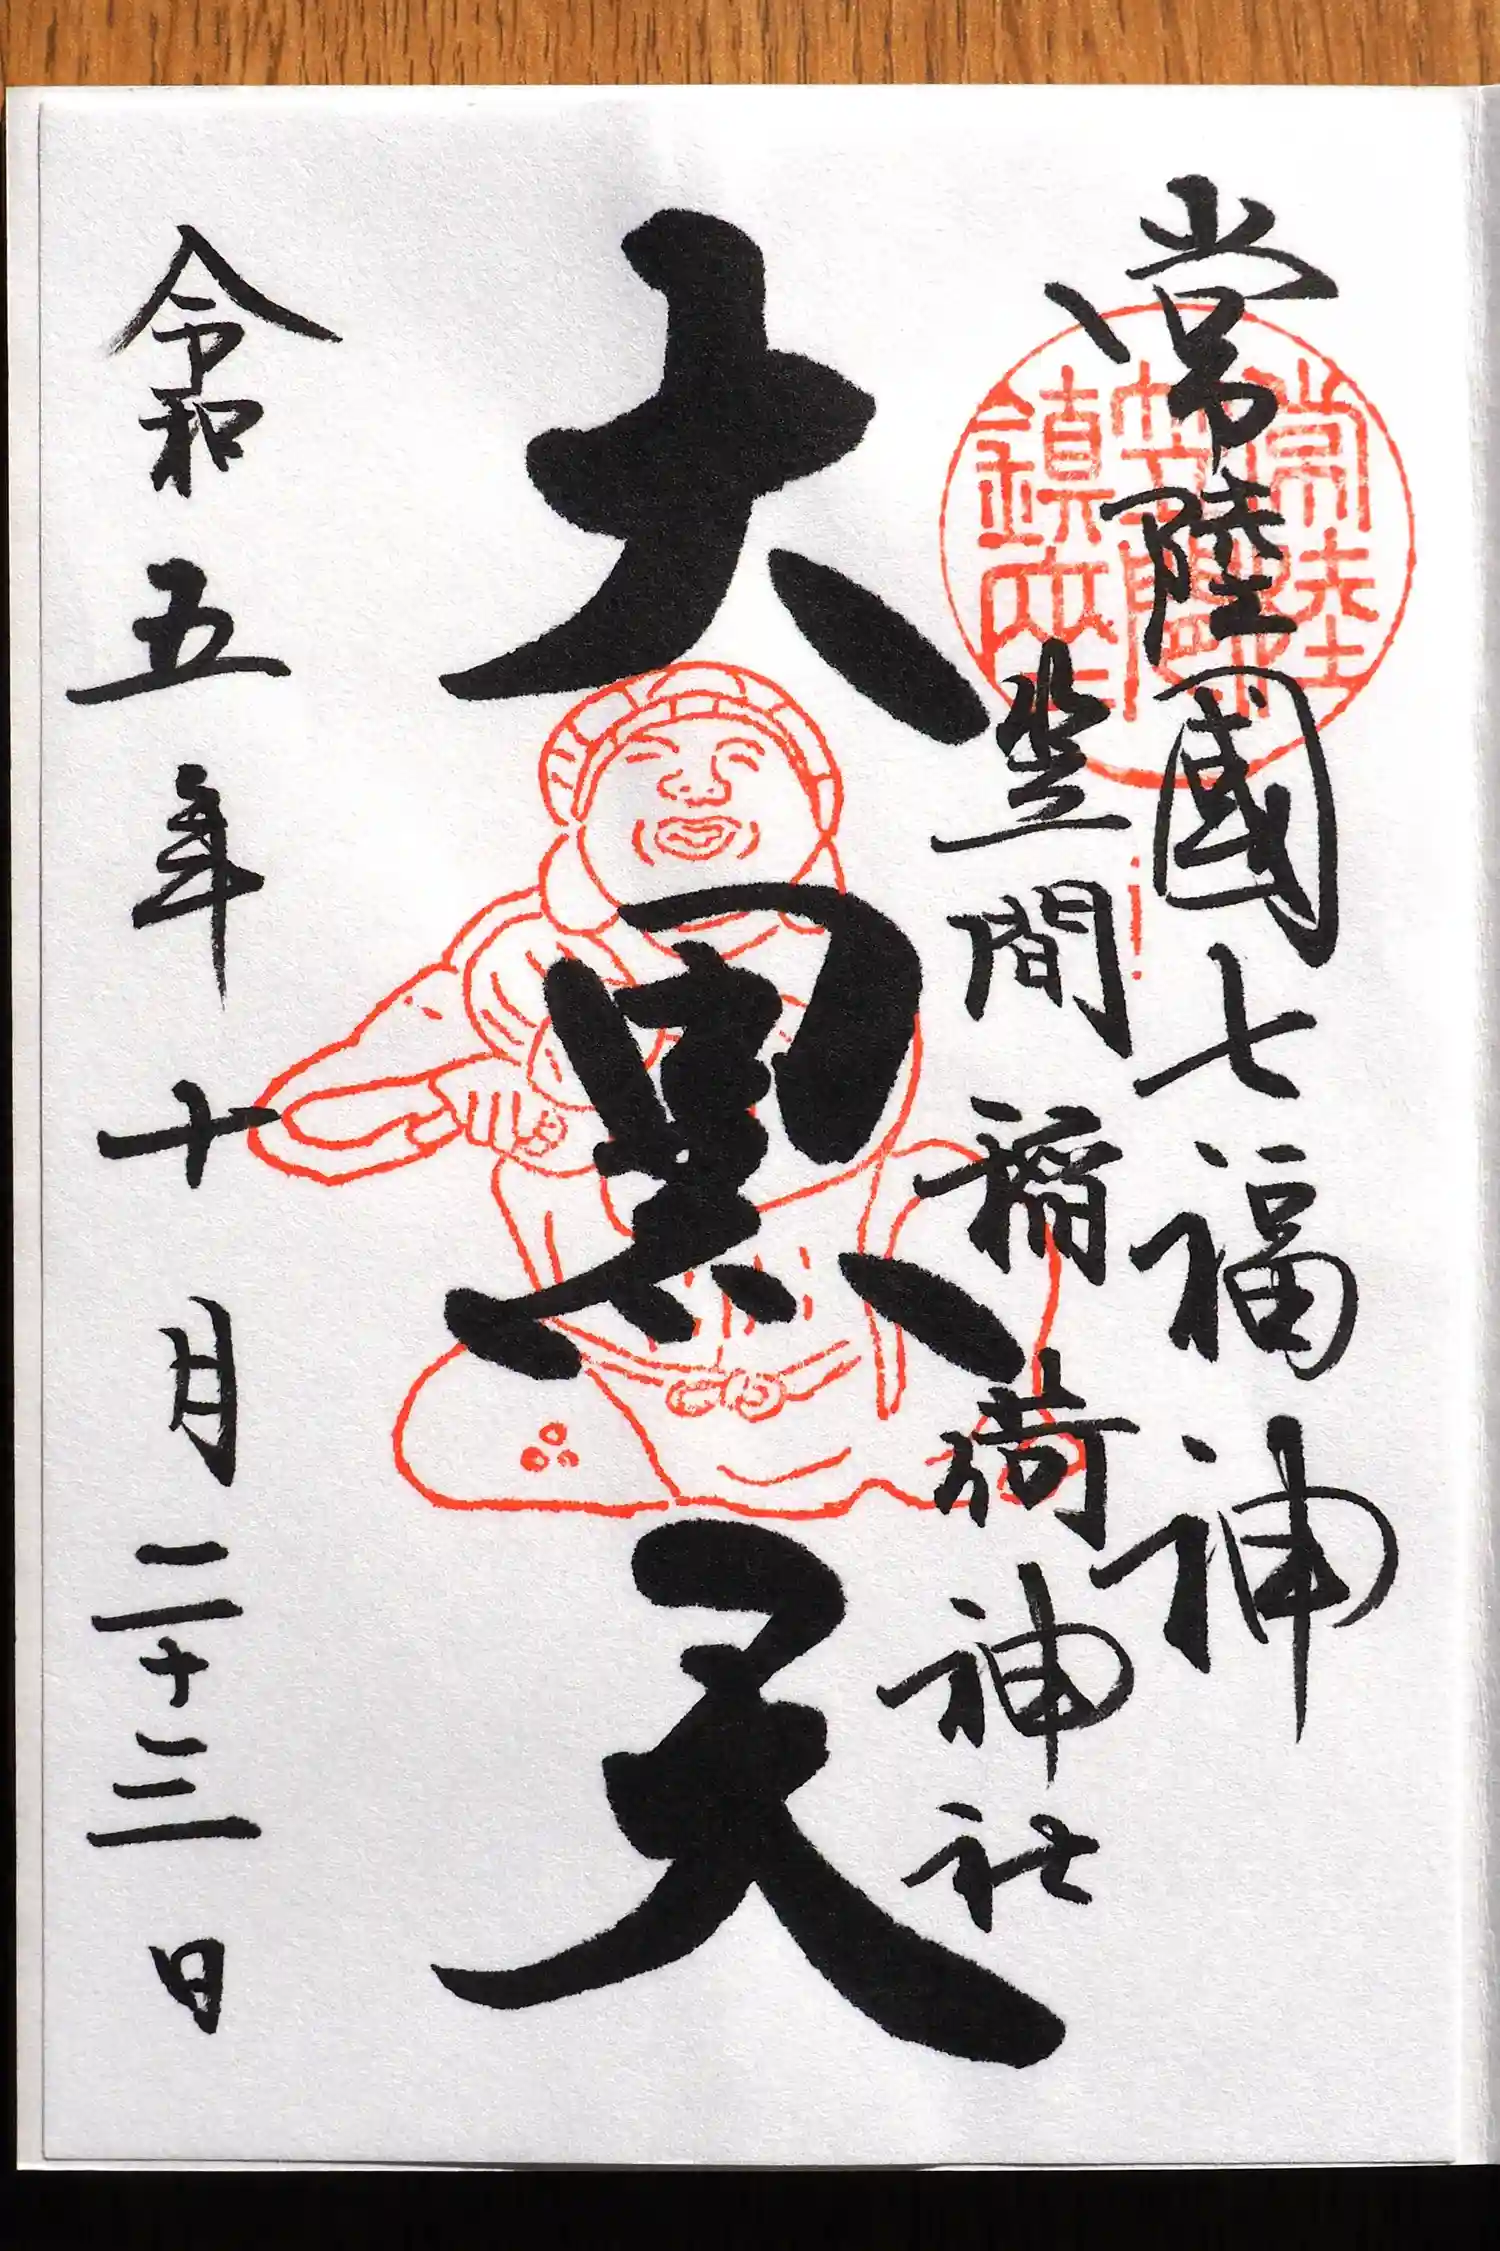 常陸國七福神
笠間稲荷神社
常陸
鎮座
大黒天
令和五年十月二十三日